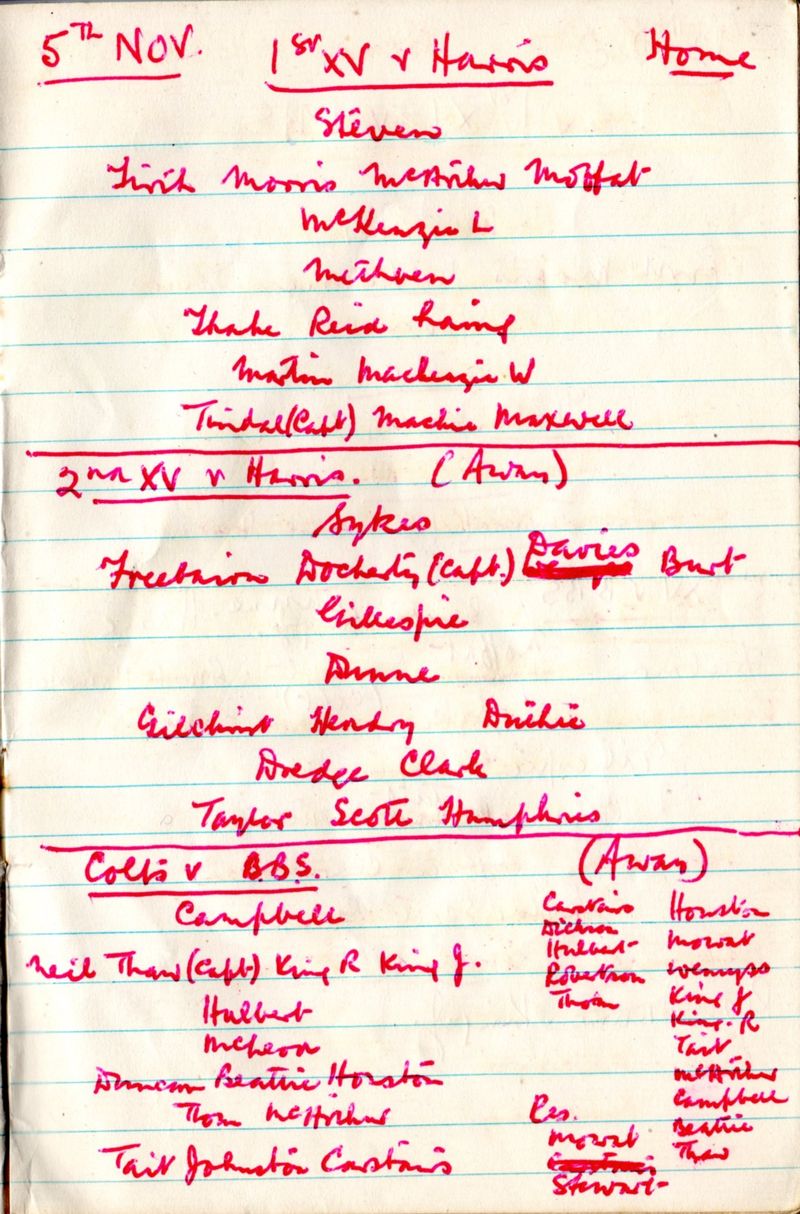 5TH NOV. 1ST XV v Harris Home
Steven
Firth Morris McArthur Moffat
McKenzie L
Methven
Reid Laing
Martin Mackenzie W
Tindal (Capt) Mackie Maxwell
2nd XV v Harris. (Away)
Sykes
Freebairn Docherty (Capt.) Davies Burt
Gillespie
Dunne
Gilchrist Hendry Duthie
Dredge Clark
Taylor Scott Humphris
Colts v B.B.S. (Away)
Campbell
Neil Thaw (Capt) King R King J.
Hulbert
McLeod
Duncan Beattie Houston
Thom McArthur
Tait Johnston Carstairs
Carstairs
Dickson
Hulbert
Robertson
Thom
Res.
Mowat
Stewart
Houston
Mowat
Wemyss
King J
King R
Tait
McArthur
Campbell
Beattie
Thaw